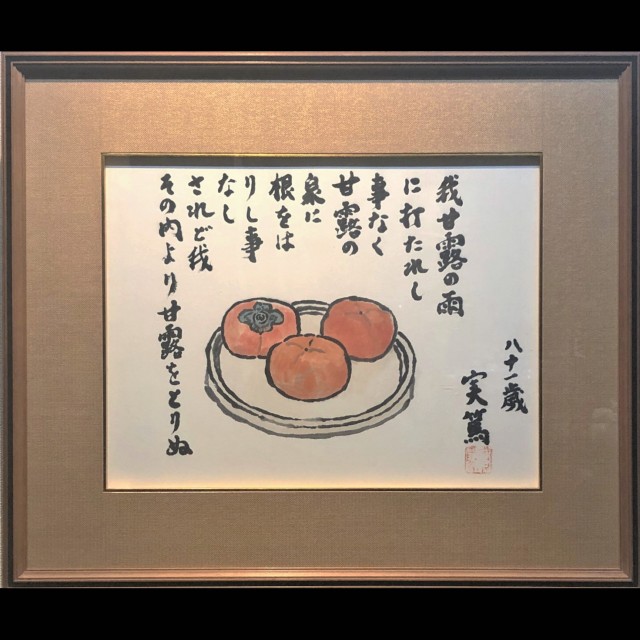 我甘露の雨
に打たれし
事なく
甘露の
泉に
根をは
りし事
なし
されど我
その内より甘露をとりぬ
八十一歳
実篤